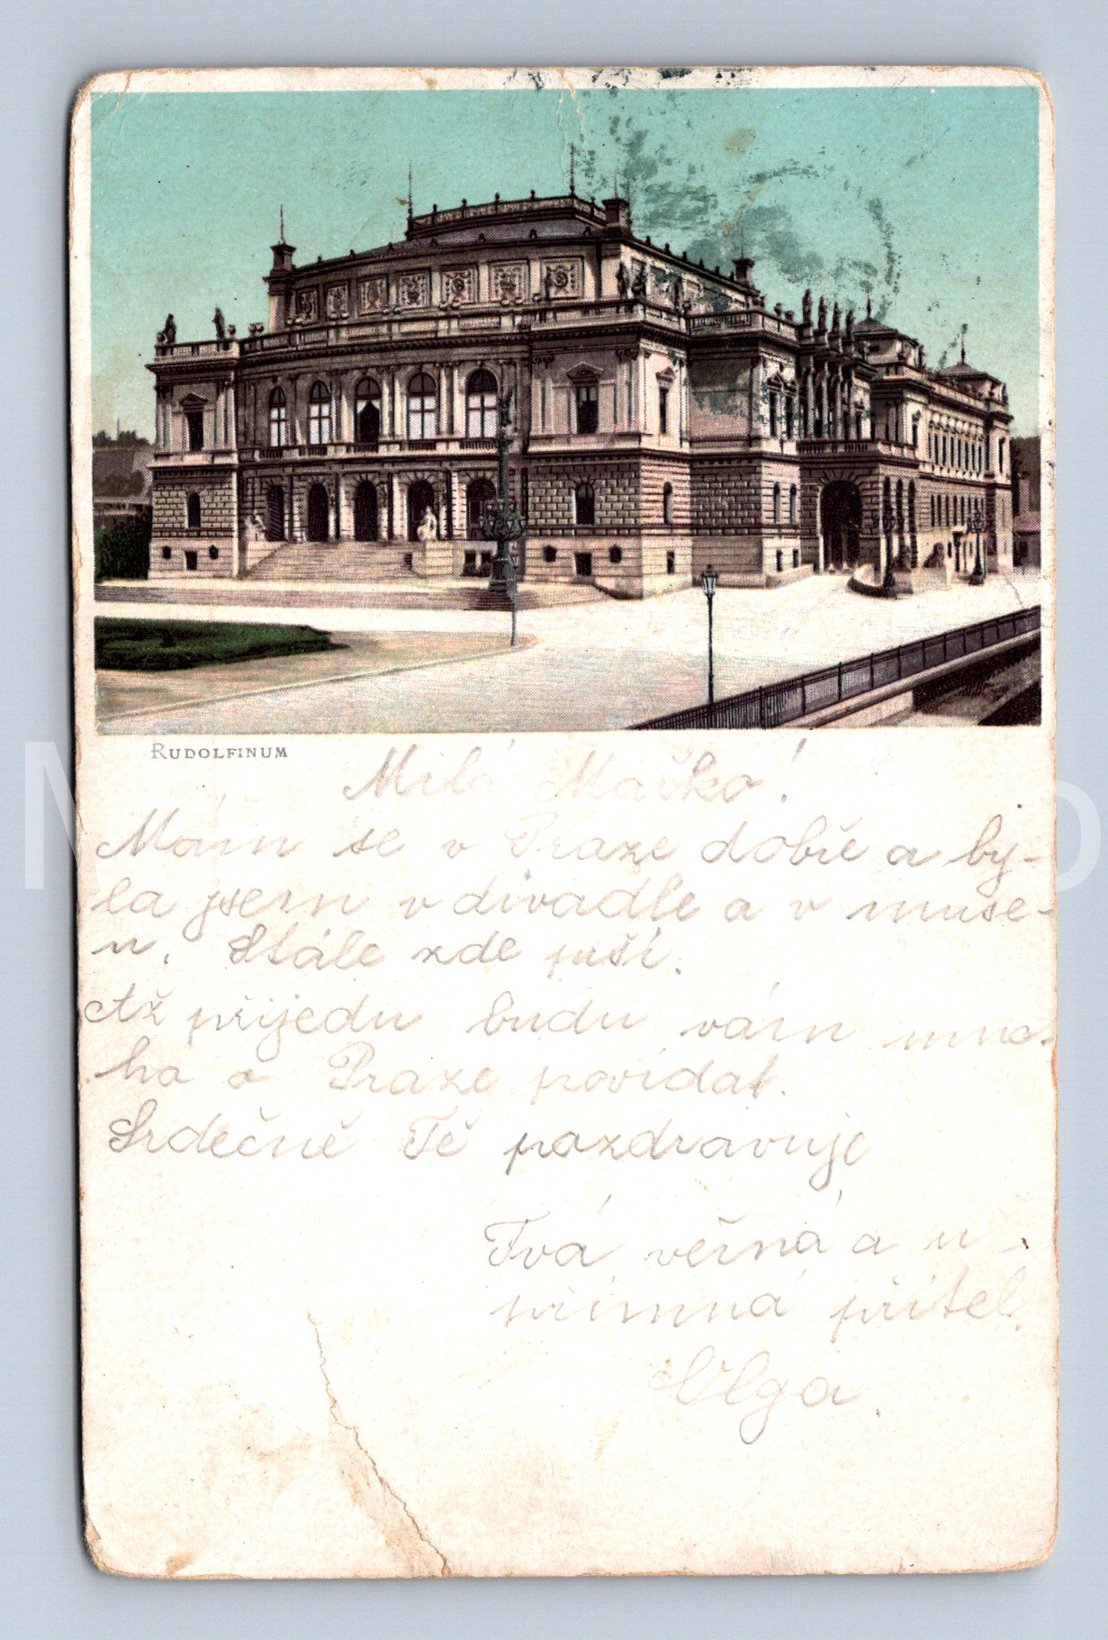 RUDOLFINUM
Milá Mařko!
Mám se v Praze dobře a by-
la jsem v divadle a v muse-
u. Stále zde prší.
Až přijedu budu vám mno-
ho o Praze povídat.
Srdečně Tě pozdravuje
Tvá věrná a u-
přímná přítel.
Olga.